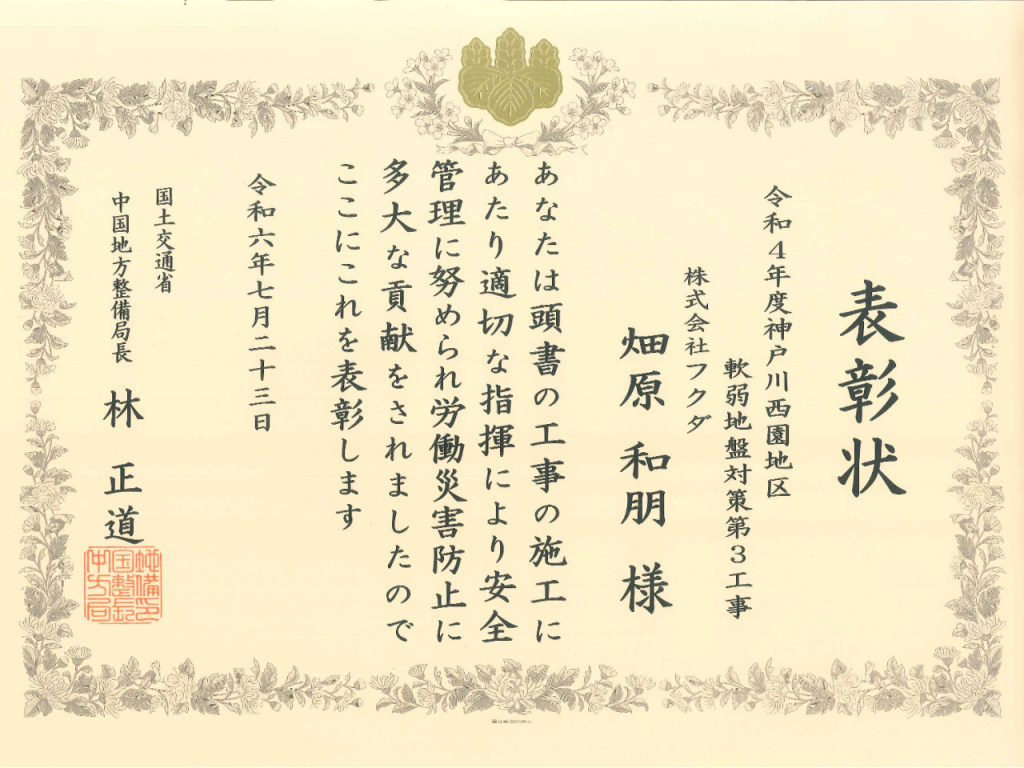 表彰状
令和4年度神戸川西園地区
軟弱地盤対策第3工事
株式会社フクダ
畑原 和朋 様
あなたは頭書の工事の施工に
あたり適切な指揮により安全
管理に努められ労働災害防止に
多大な貢献をされましたので
ここにこれを表彰します
令和六年七月二十三日
国土交通省
中国地方整備局長 林 正道